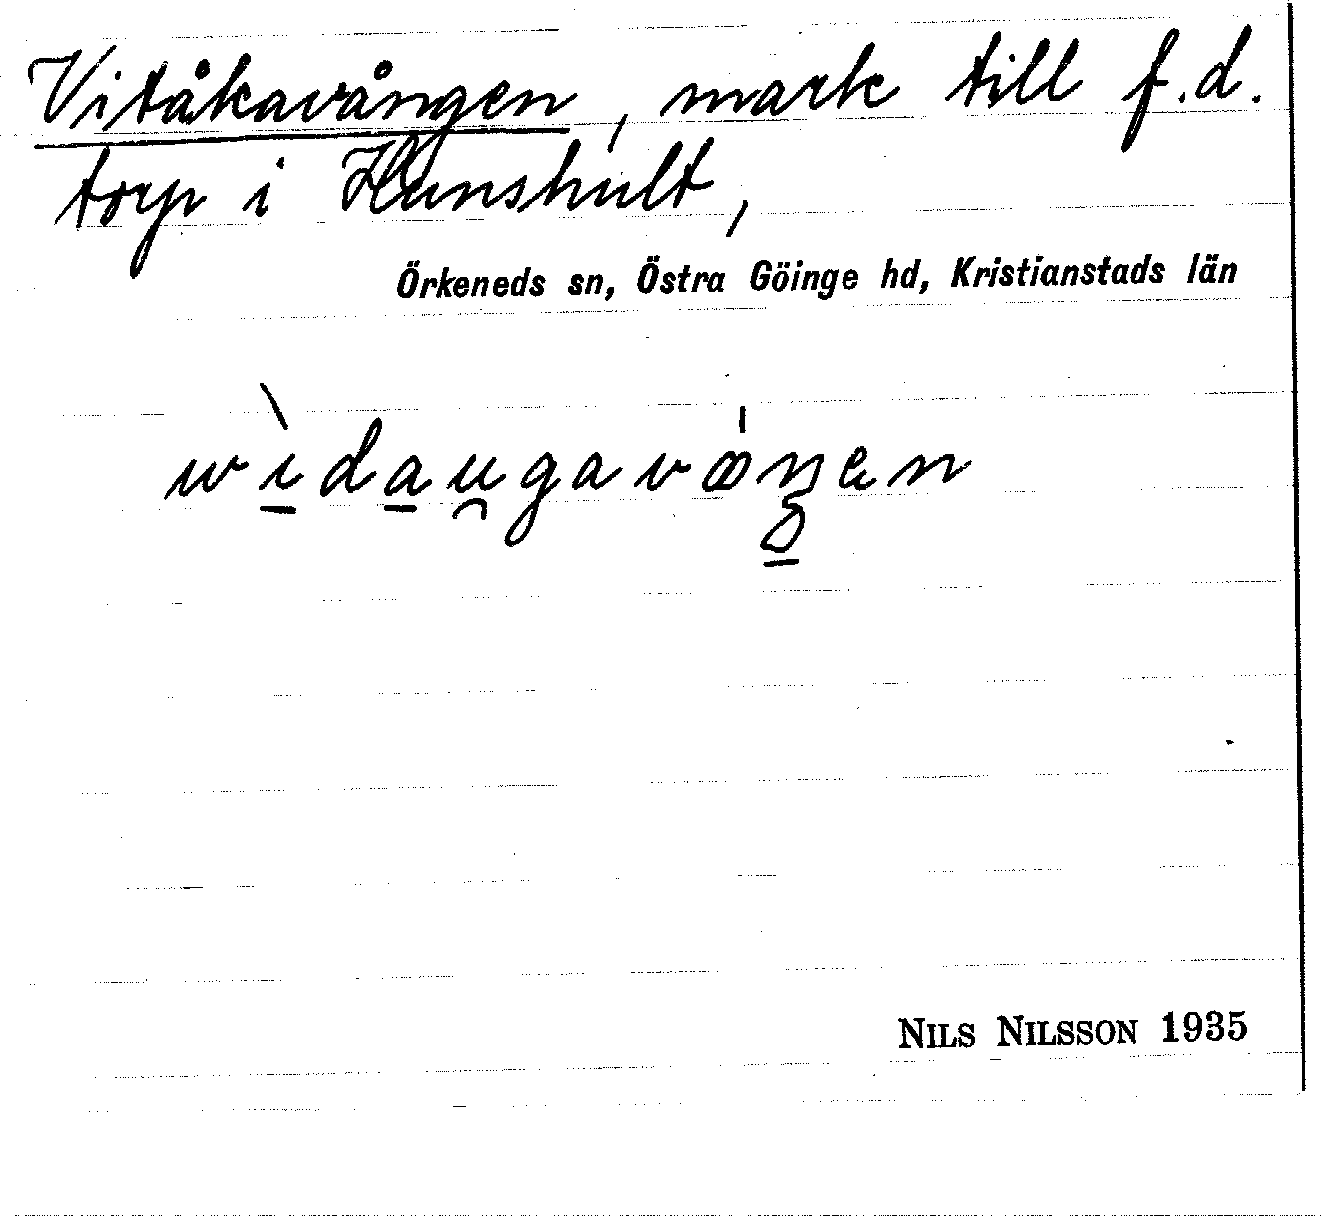 Vitåkavången, mark till f.d.
torp i Hunshult,
Örkeneds sn, Östra Göinge hd, Kristianstads län
NILS NILSSON 1935